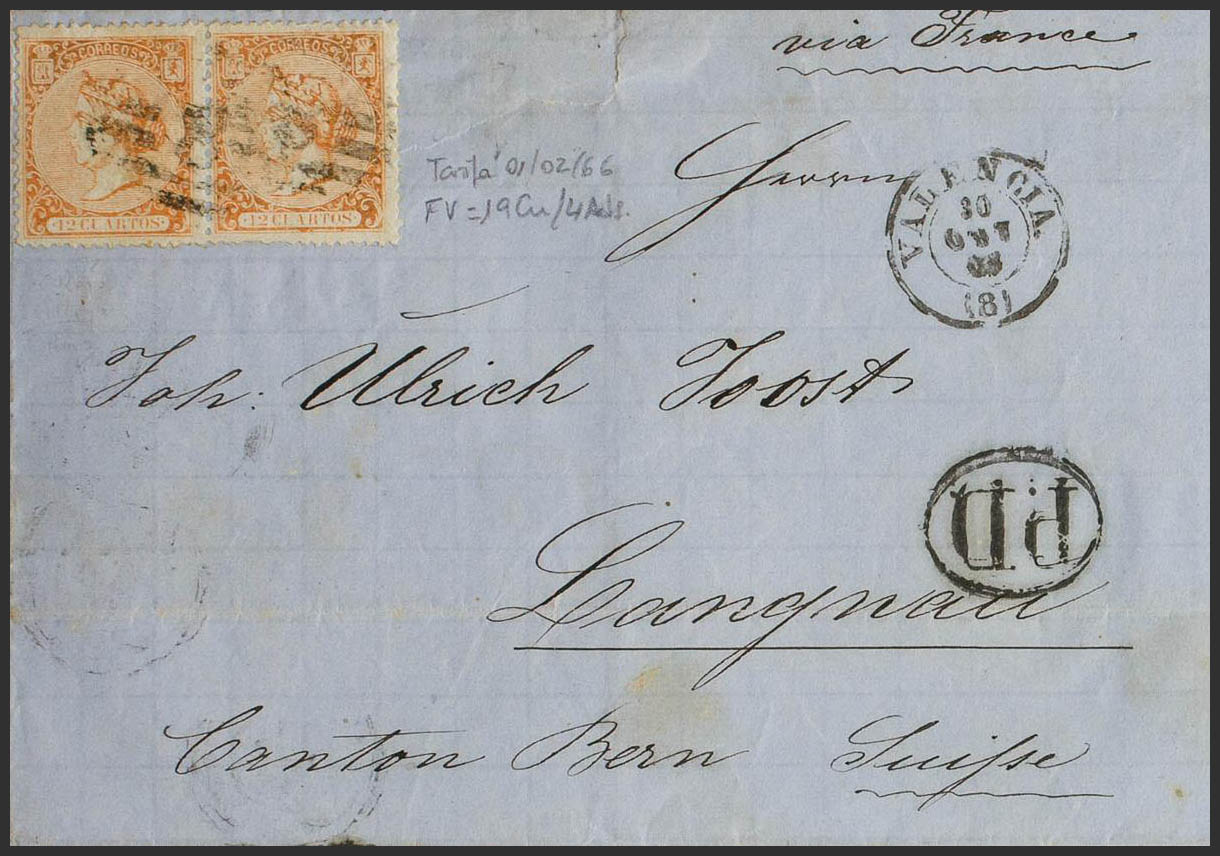 via France
CORREOS CORREOS
12 CUARTOS 12 CUARTOS
Tarifa 01/02/66
FV = 19Cu/4Ads.
Herrn
VALENCIA
30
(8)
Joh: Ulrich Joost
P.D
Langnau
Canton Bern Suiſse